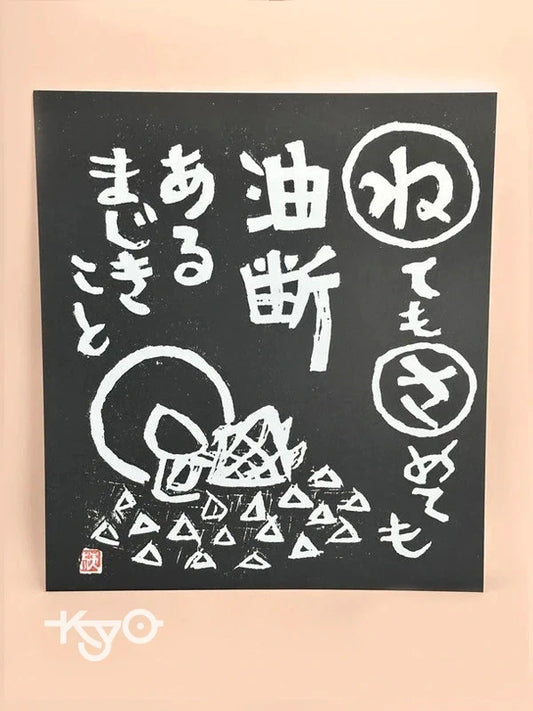 ねてもさめても
油断
ある
まじき
こと
Kyo